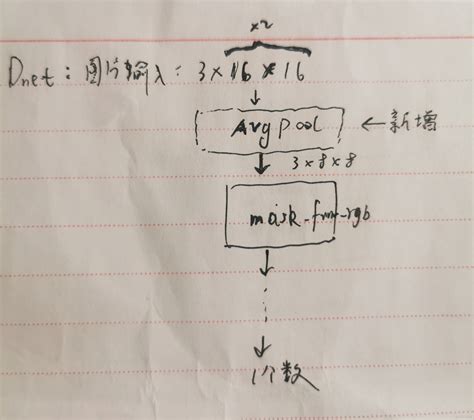 x2
Dnet：图片输入：3×16×16
Avg pool ←新增
3×8×8
mask_from_rgb
1个数